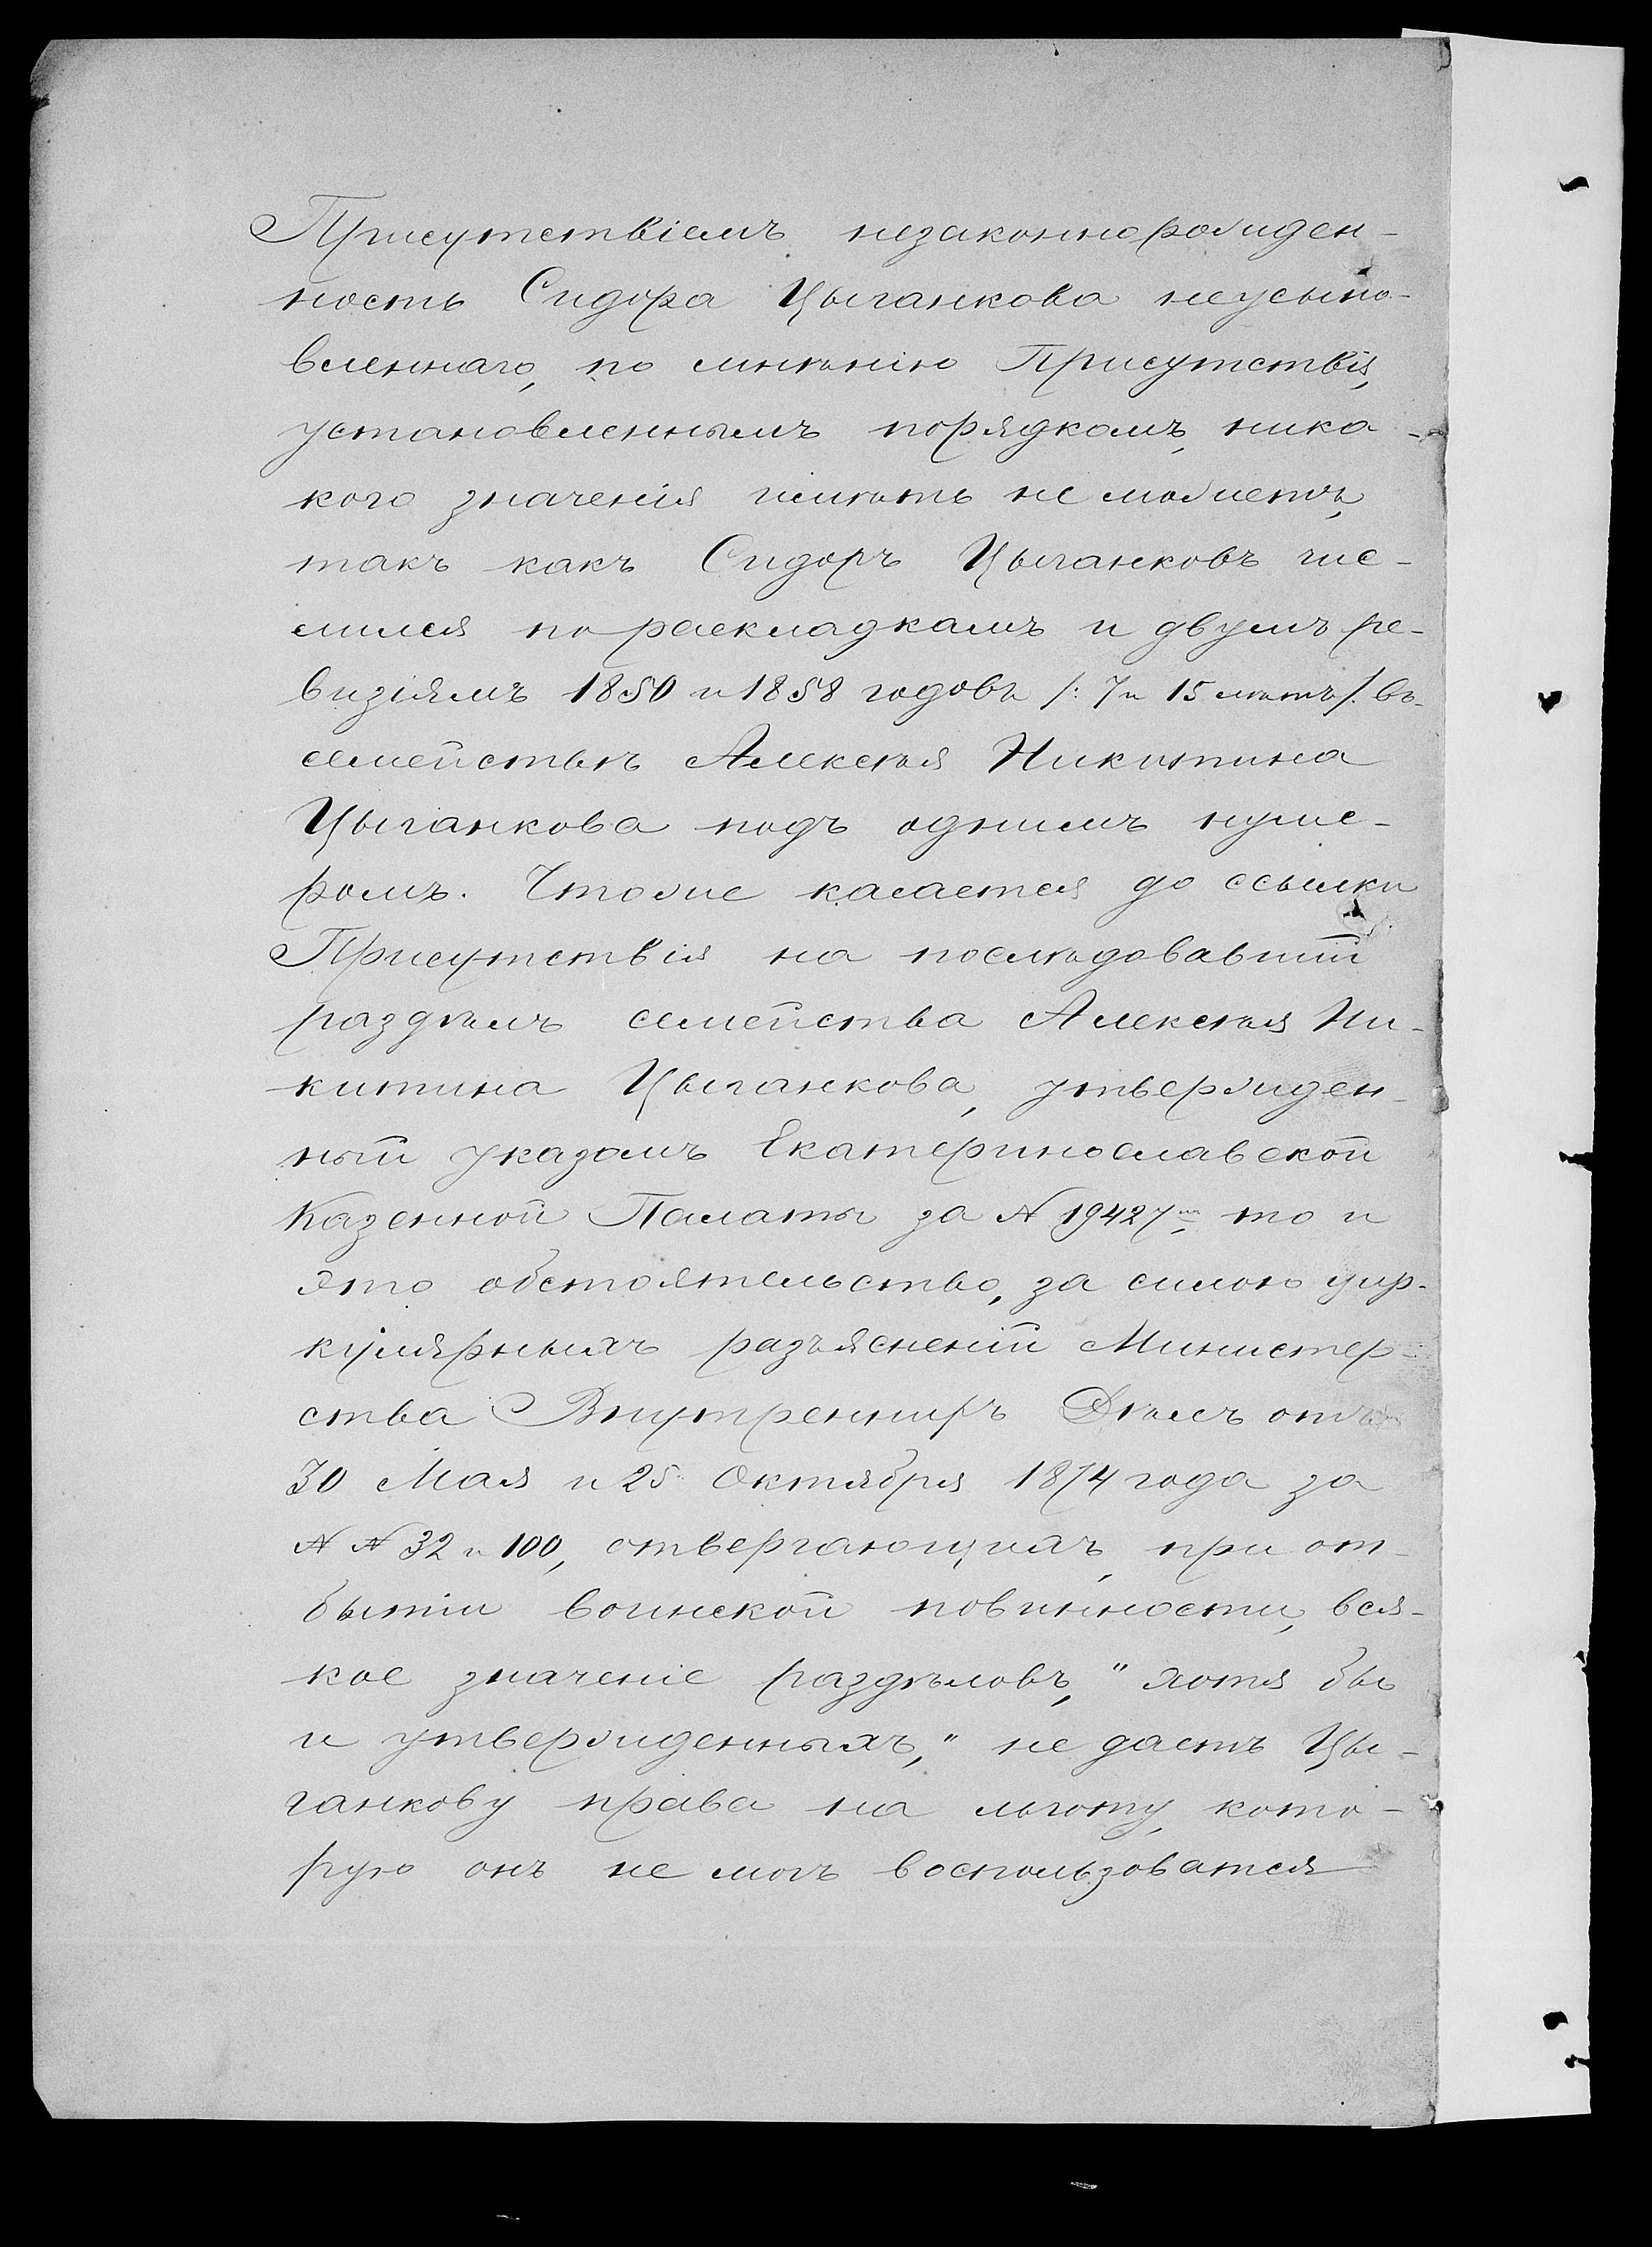 Присутствіемъ незаконнорожден-
ность Сидора Цыганкова неусыно-
вленнаго, по мнѣнію Присутствія,
установленнымъ порядкомъ, ника-
кого значенія имѣть не можетъ,
такъ какъ Сидоръ Цыганковъ чис-
лился по раскладкамъ и двумъ ре-
визіямъ 1850 и 1858 годовъ /: 7 и 15 лѣтъ /. въ
семействѣ Алексѣя Никитина
Цыганкова подъ однимъ нуме-
ромъ. Чтоже касается до ссылки
Присутствія на послѣдовавшій
раздѣлъ семейства Алексѣя Ни-
китина Цыганкова, утвержден-
ный указомъ Екатеринославской
Казенной Палаты за № 19427мъ то и
это обстоятельство, за силою цир-
кулярныхъ разъясненій Министер-
ства Внутреннихъ Дѣлъ отъ
30 Мая и 25 Октября 1874 года за
№ № 32 и 100, отвергающихъ, при от-
бытіи воинской повинности, вся-
кое значеніе раздѣловъ, "хотя бы
и утвержденныхъ," не даетъ Цы-
ганкову права на льготу, кото-
рую онъ не могъ воспользоватся